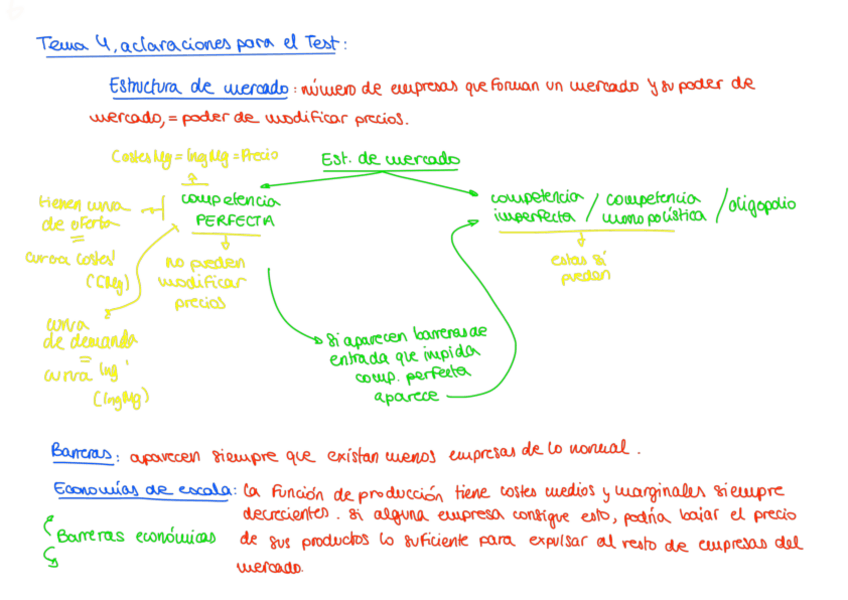 Tema 4, aclaraciones para el Test:
Estructura de mercado: número de empresas que forman un mercado y su poder de
mercado, = poder de modificar precios.
Costes Mg = Ing Mg = Precio
Est. de mercado
competencia
PERFECTA
competencia
imperfecta / competencia
monopolística / oligopolio
tienen curva
de oferta
=
curva costes'
(CMg)
no pueden
modificar
precios
estas sí
pueden
curva
de demanda
=
curva Ing'
(IngMg)
Si aparecen barreras de
entrada que impida
comp. perfecta
aparece
Barreras: aparecen siempre que existan menos empresas de lo normal.
Economías de escala: la función de producción tiene costes medios y marginales siempre
decrecientes. Si alguna empresa consigue esto, podría bajar el precio
Barreras económicas
de sus productos lo suficiente para expulsar al resto de empresas del
mercado.